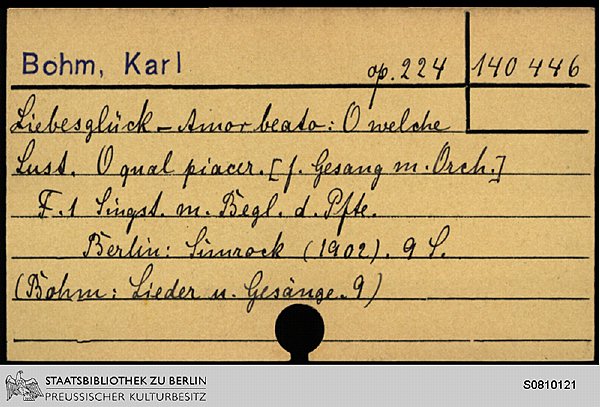 Bohm, Karl op. 224 140 446
Liebesglück – Amor beato: O welche
Lust. O qual piacer. [f. Gesang m. Orch.]
F. 1 Singst. m. Begl. d. Pfte.
Berlin: Simrock (1902). 9 S.
(Bohm: Lieder u. Gesänge. 9)
STAATSBIBLIOTHEK ZU BERLIN
PREUSSISCHER KULTURBESITZ
S0810121